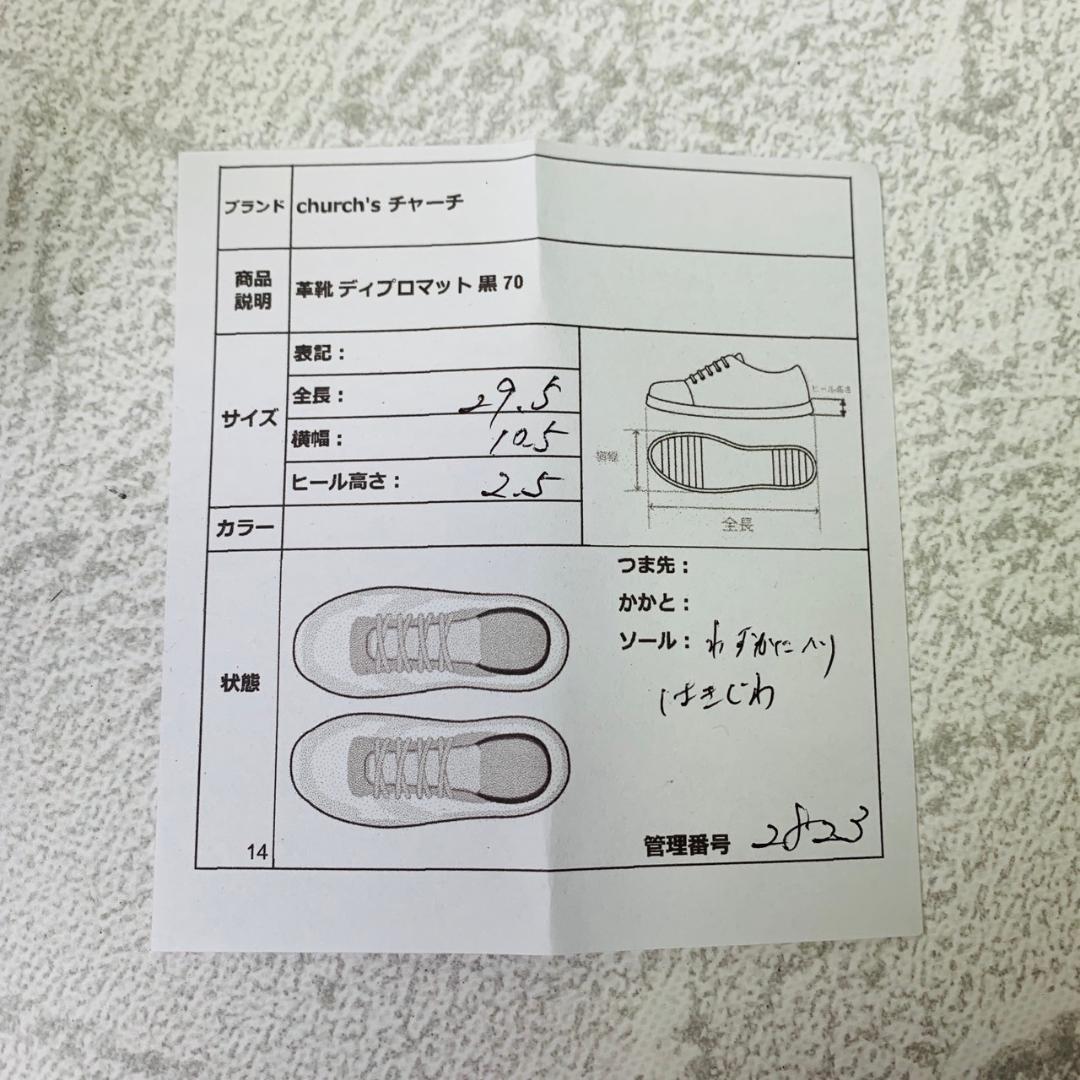 ブランド church's チャーチ
商品説明 革靴 ディプロマット 黒 70
サイズ
表記：
全長： 29.5
横幅： 10.5
ヒール高さ： 2.5
ヒール高さ
全長
カラー
状態
つま先：
かかと：
ソール： わずかにヘリ
はきじわ
14
管理番号 2823